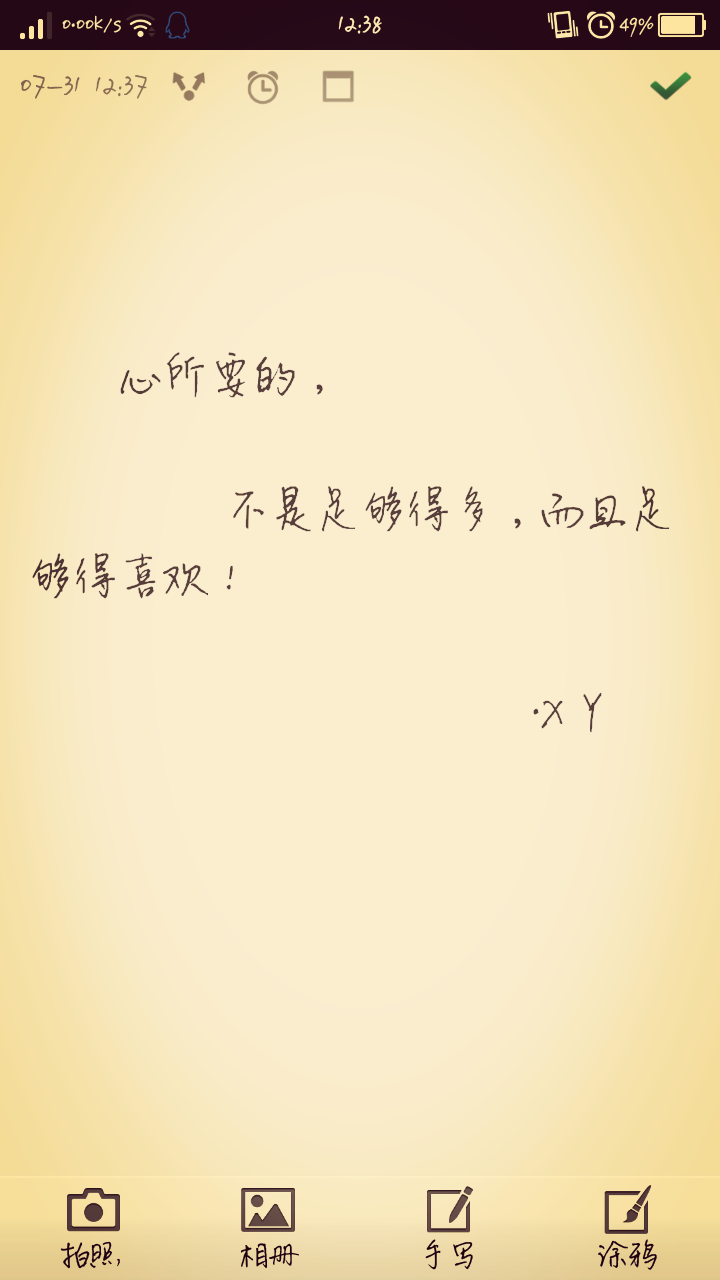 0.00K/S 12:38 49%
07-31 12:37
心所要的，
不是足够得多，而且足
够得喜欢！
·X Y
拍照, 相册 手写 涂鸦